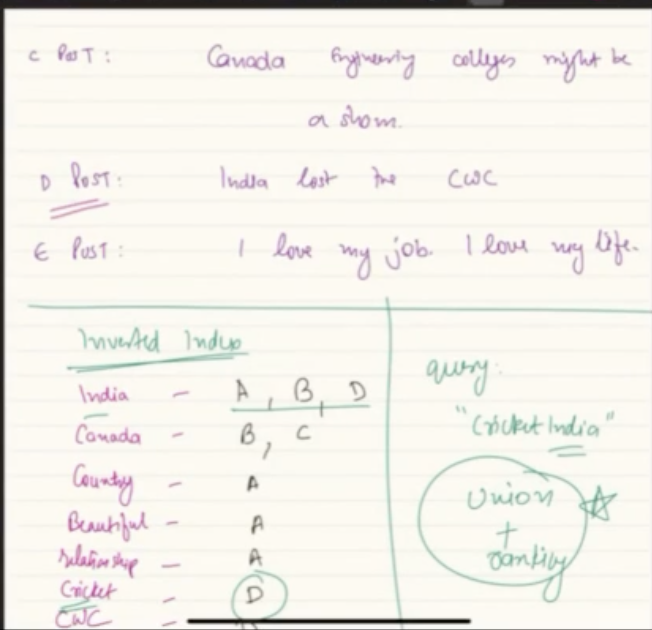 C POST: Canada Engineering colleges might be
a sham.
D POST: India lost the CWC
E POST: I love my job. I love my life.
Inverted Index
India - A, B, D
Canada - B, C
Country - A
Beautiful - A
relationship - A
Cricket - D
CWC -
query:
"Cricket India"
Union
+
ranking